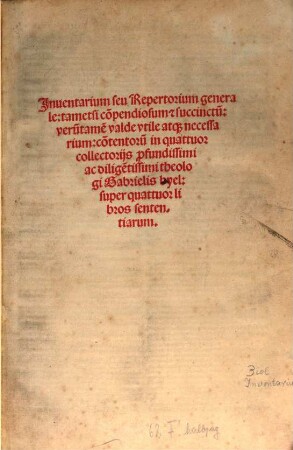 Inuentarium seu Repertorium genera
le: tametsi cõpendiosum ⁊ succinctũ:
verũtamẽ valde vtile atqꝫ necessa
rium: cõtentorũ in quattuor
collectorijs ꝓfundissimi
ac diligẽtissimi theolo
gi Gabrielis byel:
super quattuor li
bros senten⸗
tiarum.
Biel
Inventarium